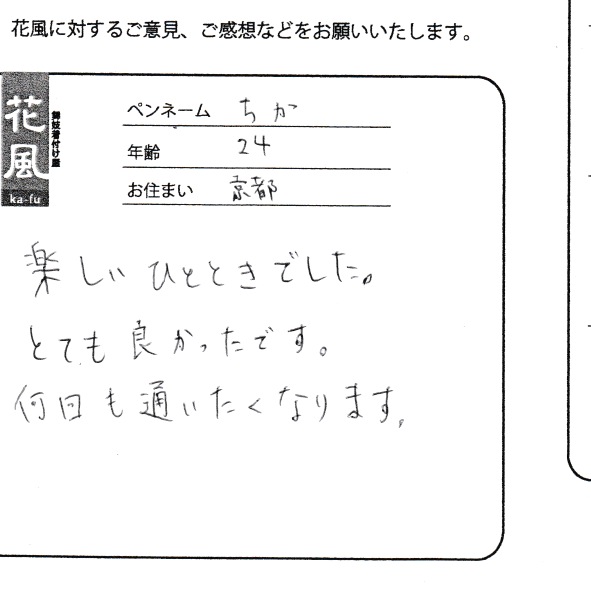 花風に対するご意見、ご感想などをお願いいたします。
花風
舞妓着付け屋
ka-fu
ペンネーム ちか
年齢 24
お住まい 京都
楽しいひとときでした。
とても良かったです。
何回も通いたくなります。